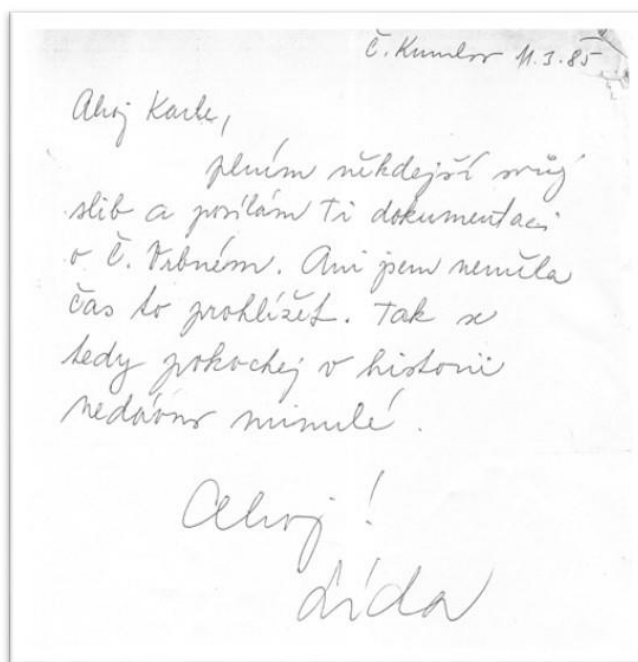 Č. Krumlov 11.3.85
Ahoj Karle,
plním někdejší svůj
slib a posílám Ti dokumentaci
o Č. Vrbném. Ani jsem neměla
čas to prohlížet. Tak se
tedy pokochej v historii
nedávno minulé.
Ahoj!
Lída